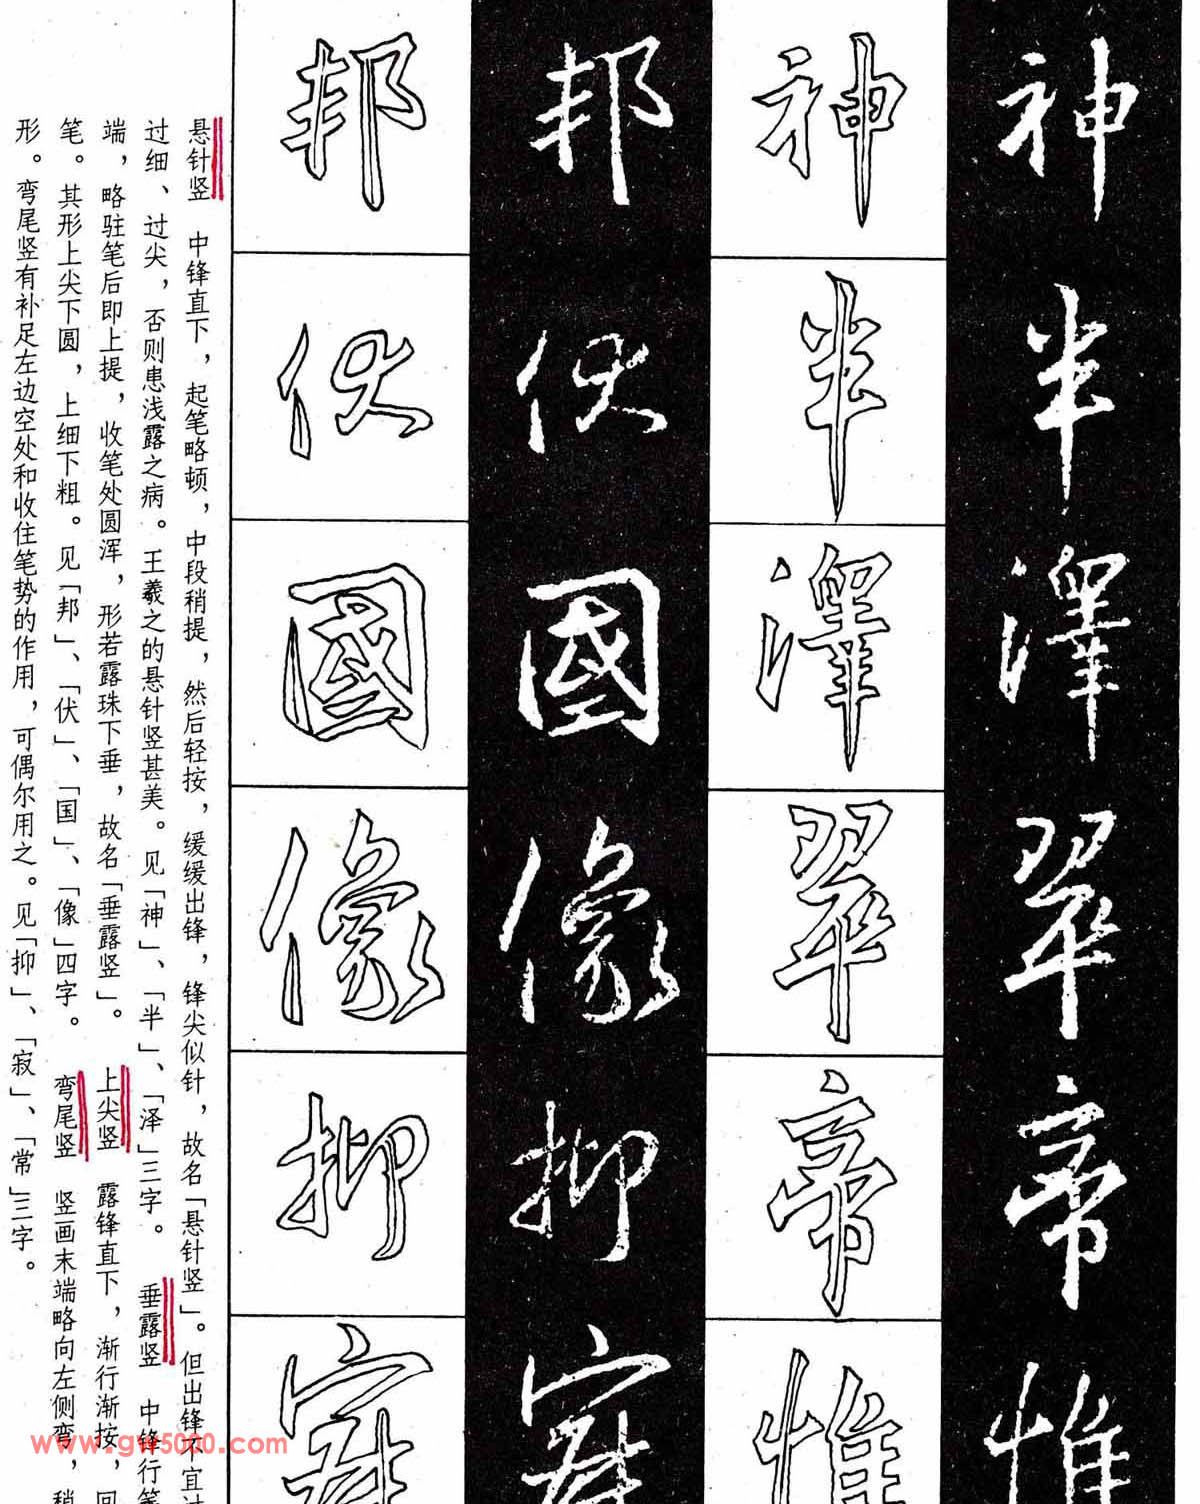 神 神 邦 邦
半 半 伏 伏
澤 澤 國 國
翠 翠 像 像
帝 帝 抑 抑
惟 惟 寂 寂
悬针竖 中锋直下，起笔略顿，中段稍提，然后轻按，缓缓出锋，锋尖似针，故名「悬针竖」。但出锋不宜过
过细、过尖，否则患浅露之病。王羲之的悬针竖甚美。见「神」、「半」、「泽」三字。 垂露竖 中锋行笔
端，略驻笔后即上提，收笔处圆浑，形若露珠下垂，故名「垂露竖」。 上尖竖 露锋直下，渐行渐按，回
笔。其形上尖下圆，上细下粗。见「邦」、「伏」、「国」、「像」四字。 弯尾竖 竖画末端略向左侧弯，稍
形。弯尾竖有补足左边空处和收住笔势的作用，可偶尔用之。见「抑」、「寂」、「常」三字。
www.gw5000.com